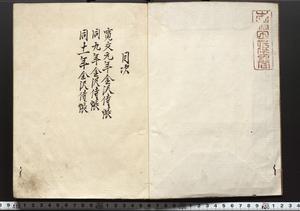 目次
寛文元年金沢侍帳
同九年金沢侍帳
同十一年金沢侍帳